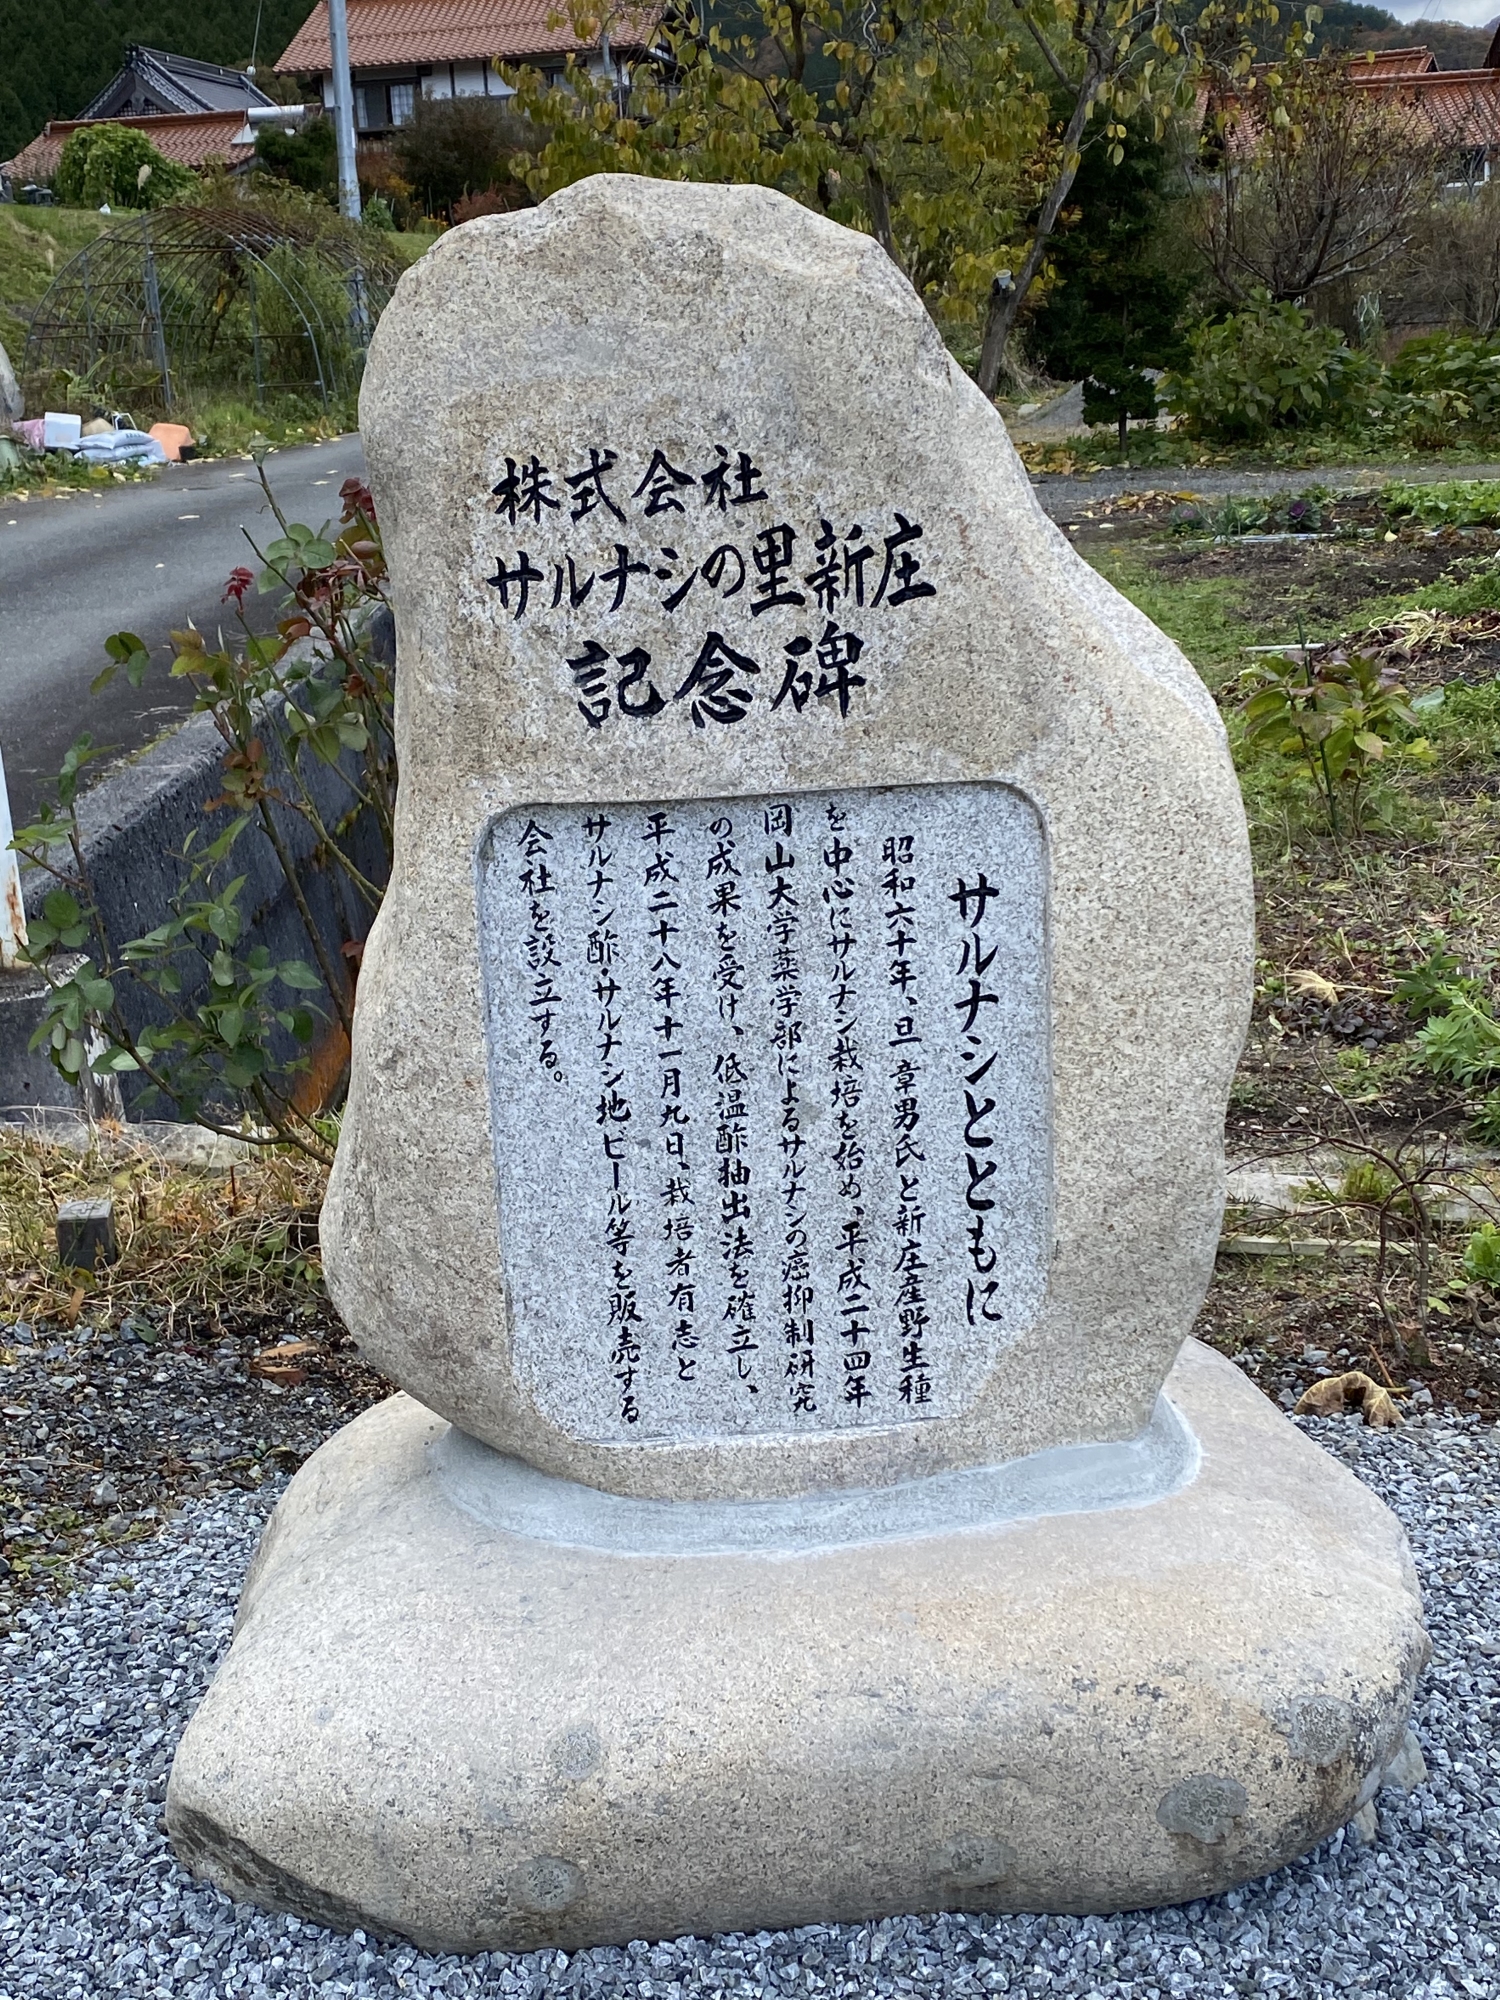 株式会社
サルナシの里新庄
記念碑
サルナシとともに
昭和六十年、旦 章男氏と新庄産野生種
を中心にサルナシ栽培を始め、平成二十四年
岡山大学薬学部によるサルナシの癌抑制研究
の成果を受け、低温酢抽出法を確立し、
平成二十八年十一月九日、栽培者有志と
サルナシ酢・サルナシ地ビール等を販売する
会社を設立する。